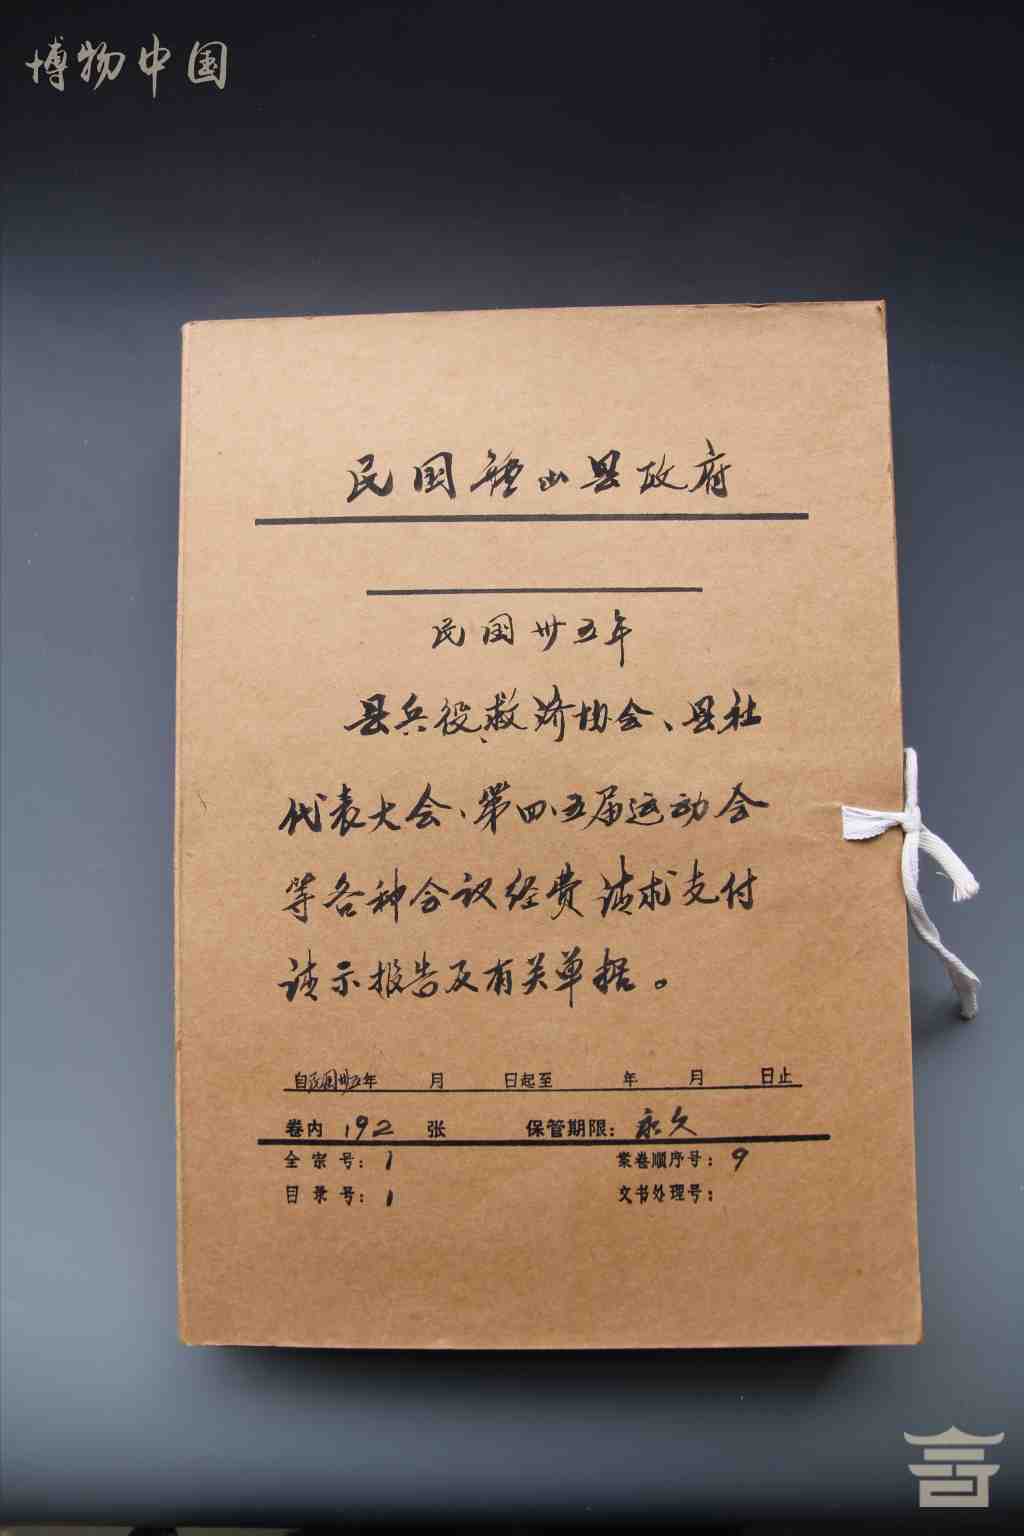 博物中国
民国钟山县政府
民国卅五年
县兵役救济协会、县社
代表大会、第四、五届运动会
等各种会议经费请求支付
请示报告及有关单据。
自民国卅五年 月 日起至 年 月 日止
卷内 192 张 保管期限：永久
全宗号：1 案卷顺序号：9
目录号：1 文书处理号：